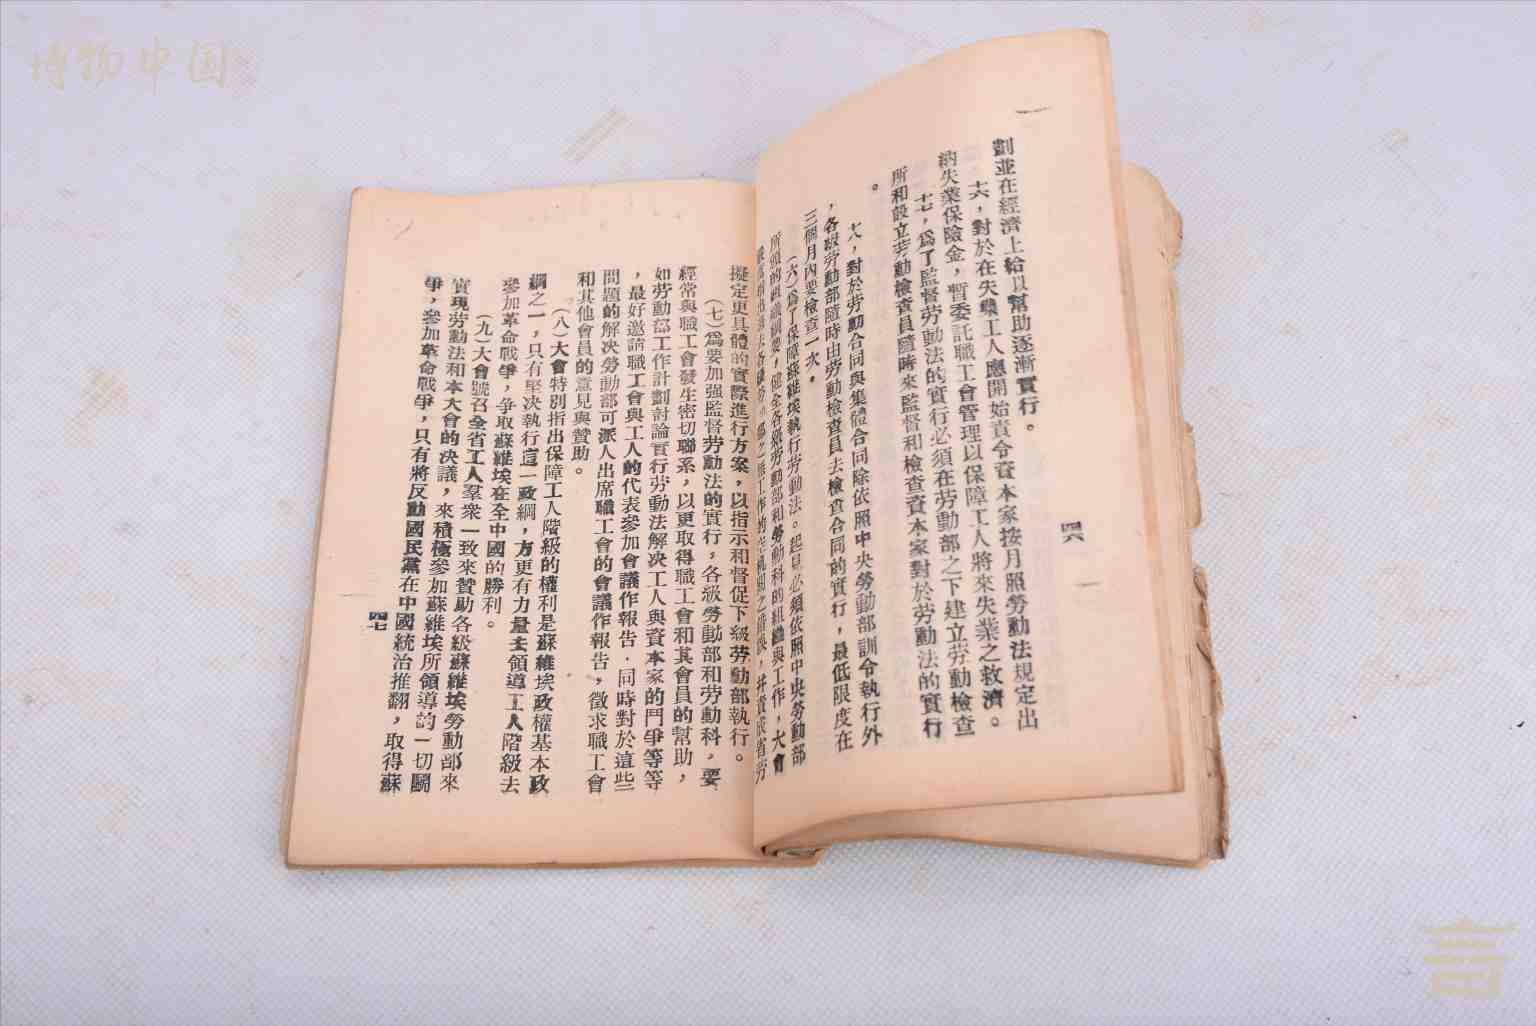 博物中国
劃並在經濟上給以幫助逐漸實行。
十六，對於在失業工人應開始責令資本家按月照勞動法規定出
納失業保險金，暫委託職工會管理以保障工人將來失業之救濟。
十七，爲了監督劳動法的實行必須在劳動部之下建立劳動檢查
所和設立劳動檢查員隨時來監督和檢查資本家對於劳動法的實行
。
十八，對於劳動合同與集體合同除依照中央勞動部訓令執行外
，各級劳動部隨時由劳動檢查員去檢查合同的實行，最低限度在
三個月內要檢查一次。
（六）爲了保障蘇維埃執行劳動法。起見必須依照中央勞動部
所頒的組織綱要，健全各級劳動部和勞動科的組織與工作，大會
四六
擬定更具體的實際進行方案，以指示和督促下級劳動部執行。
（七）爲要加强監督劳動法的實行，各級勞動部和劳動科，要
經常與職工會發生密切聯系，以更取得職工會和其會員的幫助，
如劳動部工作計劃討論實行劳動法解决工人與資本家的鬥爭等等
，最好邀請職工會與工人的代表參加會議作報告．同時對於這些
問題的解决勞動部可派人出席職工會的會議作報告，徵求職工會
和其他會員的意見與贊助。
（八）大會特別指出保障工人階級的權利是蘇維埃政權基本政
綱之一，只有堅决執行這一政綱，方更有力量去領導工人階級去
參加革命戰爭，爭取蘇維埃在全中國的勝利。
（九）大會號召全省工人羣衆一致來贊助各級蘇維埃勞動部來
實現劳動法和本大會的決議，來積極參加蘇維埃所領導的一切鬭
爭，參加革命戰爭，只有將反動國民黨在中國統治推翻，取得蘇
四七